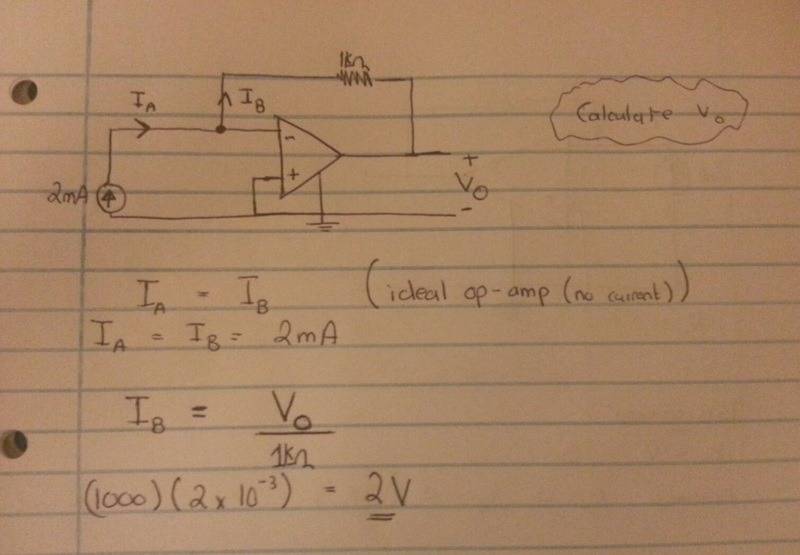 1kΩ
I_A
I_B
Calculate V_o
-
+
2mA
+
V_O
-
I_A = I_B (ideal op-amp (no current))
I_A = I_B = 2mA
I_B = V_O
1kΩ
(1000)(2 x 10^-3) = 2V